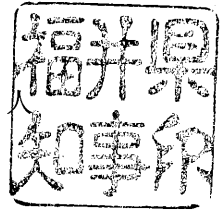 福井県
知事印